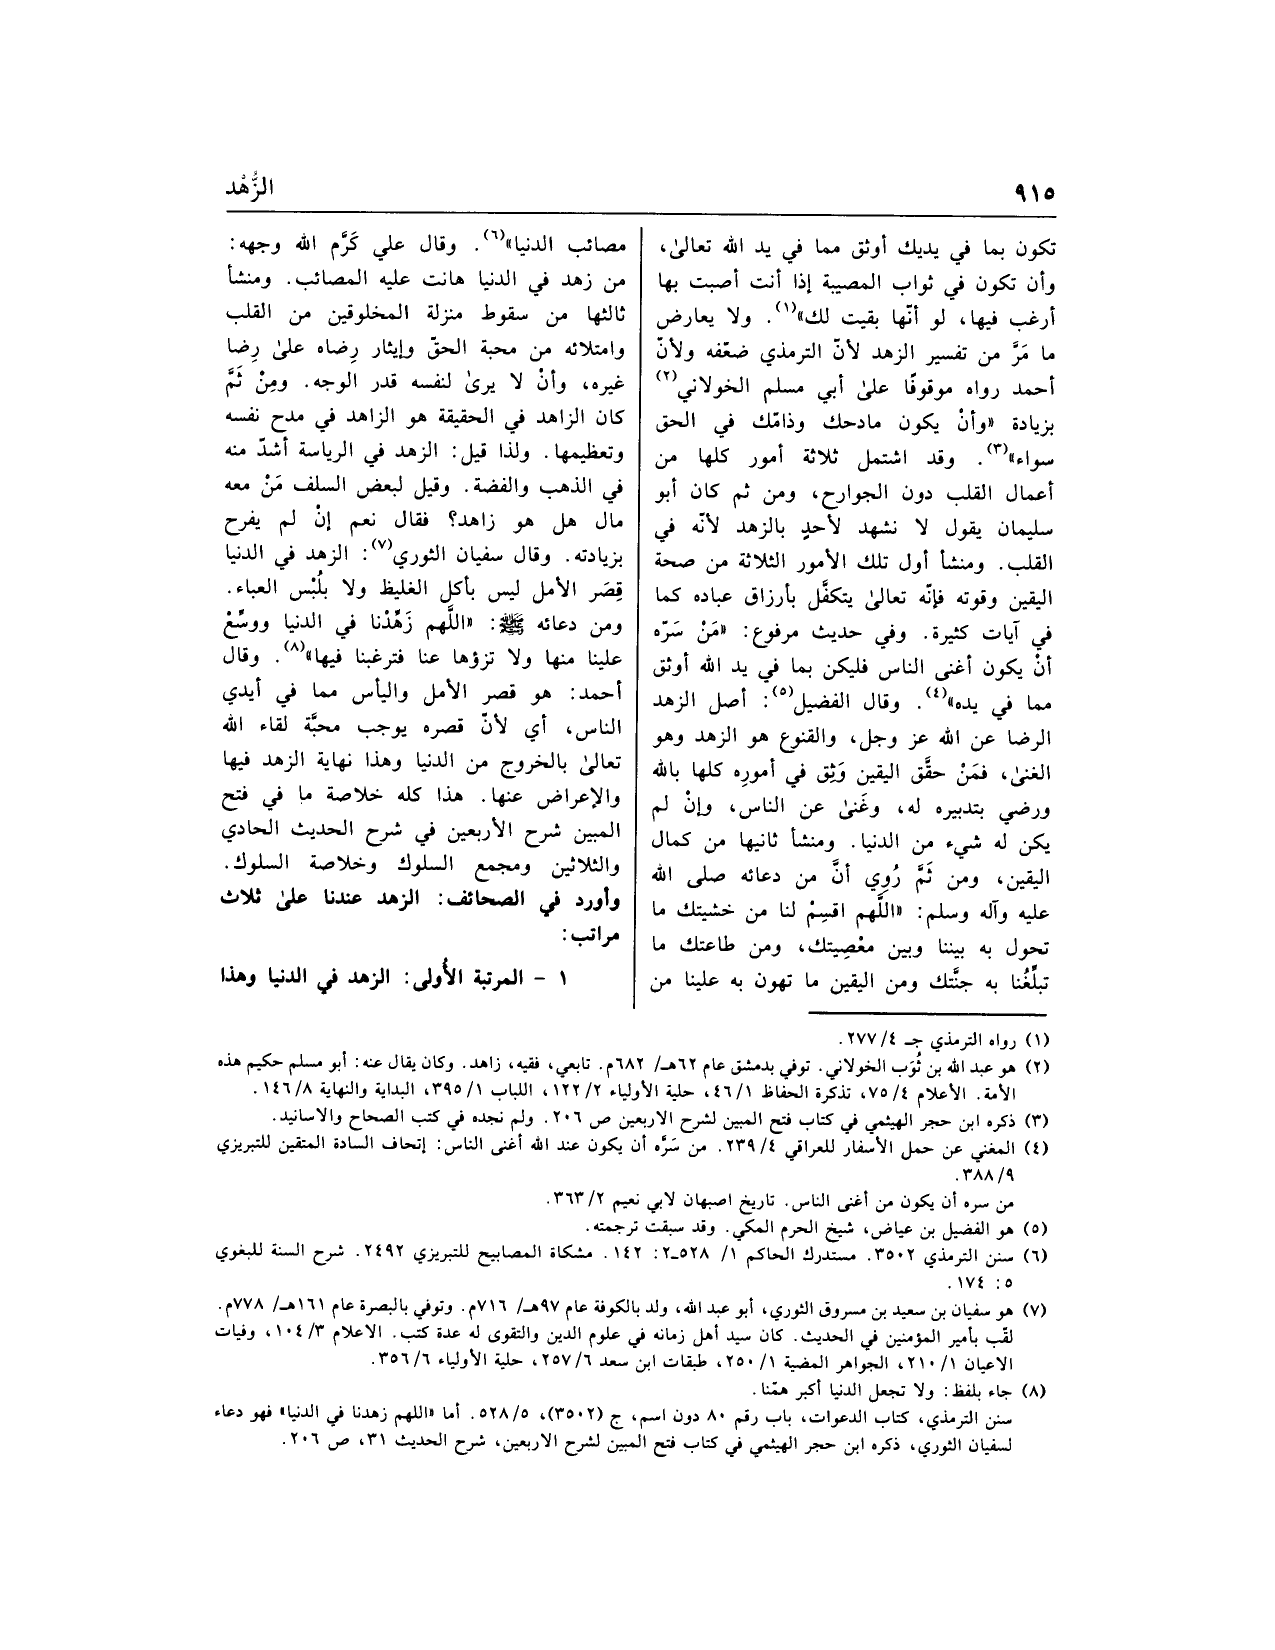 ٩١٥
الزُّهْد
تكون بما في يديك أوثق مما في يد الله تعالىٰ،
وأن تكون في ثواب المصيبة إذا أنت أصبت بها
أرغب فيها، لو أنّها بقيت لك»(١). ولا يعارض
ما مَرَّ من تفسير الزهد لأنّ الترمذي ضعّفه ولأنّ
أحمد رواه موقوفًا علىٰ أبي مسلم الخولاني(٢)
بزيادة «وأنْ يكون مادحك وذامّك في الحق
سواء»(٣). وقد اشتمل ثلاثة أمور كلها من
أعمال القلب دون الجوارح، ومن ثم كان أبو
سليمان يقول لا نشهد لأحدٍ بالزهد لأنّه في
القلب. ومنشأ أول تلك الأمور الثلاثة من صحة
اليقين وقوته فإنّه تعالىٰ يتكفَّل بأرزاق عباده كما
في آيات كثيرة. وفي حديث مرفوع: «مَنْ سَرّه
أنْ يكون أغنى الناس فليكن بما في يد الله أوثق
مما في يده»(٤). وقال الفضيل(٥): أصل الزهد
الرضا عن الله عز وجل، والقنوع هو الزهد وهو
الغنىٰ، فمَنْ حقَّق اليقين وَثِق في أمورِه كلها بالله
ورضي بتدبيره له، وغَنىٰ عن الناس، وإنْ لم
يكن له شيء من الدنيا. ومنشأ ثانيها من كمال
اليقين، ومن ثَمَّ رُوِي أنَّ من دعائه صلى الله
عليه وآله وسلم: «اللَّهم اقسِمْ لنا من خشيتك ما
تحول به بيننا وبين معْصِيتك، ومن طاعتك ما
تبلِّغُنا به جنَّتك ومن اليقين ما تهون به علينا من
مصائب الدنيا»(٦). وقال علي كَرَّم الله وجهه:
من زهد في الدنيا هانت عليه المصائب. ومنشأ
ثالثها من سقوط منزلة المخلوقين من القلب
وامتلائه من محبة الحقّ وإيثار رِضاه علىٰ رِضا
غيره، وأنْ لا يرىٰ لنفسه قدر الوجه. ومِنْ ثَمَّ
كان الزاهد في الحقيقة هو الزاهد في مدح نفسه
وتعظيمها. ولذا قيل: الزهد في الرياسة أشدّ منه
في الذهب والفضة. وقيل لبعض السلف مَنْ معه
مال هل هو زاهد؟ فقال نعم إنْ لم يفرح
بزيادته. وقال سفيان الثوري(٧): الزهد في الدنيا
قِصَر الأمل ليس بأكل الغليظ ولا بلُبْس العباء.
ومن دعائه ﷺ: «اللَّهم زَهِّدْنا في الدنيا ووسِّعْ
علينا منها ولا تزؤها عنا فترغبنا فيها»(٨). وقال
أحمد: هو قصر الأمل واليأس مما في أيدي
الناس، أي لأنّ قصره يوجب محبَّة لقاء الله
تعالىٰ بالخروج من الدنيا وهذا نهاية الزهد فيها
والإعراض عنها. هذا كله خلاصة ما في فتح
المبين شرح الأربعين في شرح الحديث الحادي
والثلاثين ومجمع السلوك وخلاصة السلوك.
وأورد في الصحائف: الزهد عندنا علىٰ ثلاث
مراتب:
١ - المرتبة الأُولى: الزهد في الدنيا وهذا
(١) رواه الترمذي جـ ٤/ ٢٧٧.
(٢) هو عبد الله بن ثُوَب الخولاني. توفي بدمشق عام ٦٢هـ/ ٦٨٢م. تابعي، فقيه، زاهد. وكان يقال عنه: أبو مسلم حكيم هذه
الأمة. الأعلام ٤/ ٧٥، تذكرة الحفاظ ١/ ٤٦، حلية الأولياء ٢/ ١٢٢، اللباب ١/ ٣٩٥، البداية والنهاية ٨/ ١٤٦.
(٣) ذكره ابن حجر الهيثمي في كتاب فتح المبين لشرح الاربعين ص ٢٠٦. ولم نجده في كتب الصحاح والاسانيد.
(٤) المغني عن حمل الأسفار للعراقي ٤/ ٢٣٩. من سَرَّه أن يكون عند الله أغنى الناس: إتحاف السادة المتقين للتبريزي
٩/ ٣٨٨.
من سره أن يكون من أغنى الناس. تاريخ اصبهان لابي نعيم ٢/ ٣٦٣.
(٥) هو الفضيل بن عياض، شيخ الحرم المكي. وقد سبقت ترجمته.
(٦) سنن الترمذي ٣٥٠٢. مستدرك الحاكم ١/ ٥٢٨ـ٢: ١٤٢. مشكاة المصابيح للتبريزي ٢٤٩٢. شرح السنة للبغوي
٥: ١٧٤.
(٧) هو سفيان بن سعيد بن مسروق الثوري، أبو عبد الله، ولد بالكوفة عام ٩٧هـ/ ٧١٦م. وتوفي بالبصرة عام ١٦١هـ/ ٧٧٨م.
لقّب بأمير المؤمنين في الحديث. كان سيد أهل زمانه في علوم الدين والتقوى له عدة كتب. الاعلام ٣/ ١٠٤، وفيات
الاعيان ١/ ٢١٠، الجواهر المضية ١/ ٢٥٠، طبقات ابن سعد ٦/ ٢٥٧، حلية الأولياء ٦/ ٣٥٦.
(٨) جاء بلفظ: ولا تجعل الدنيا أكبر همّنا.
سنن الترمذي، كتاب الدعوات، باب رقم ٨٠ دون اسم، ج (٣٥٠٢)، ٥/ ٥٢٨. أما «اللهم زهدنا في الدنيا» فهو دعاء
لسفيان الثوري، ذكره ابن حجر الهيثمي في كتاب فتح المبين لشرح الاربعين، شرح الحديث ٣١، ص ٢٠٦.